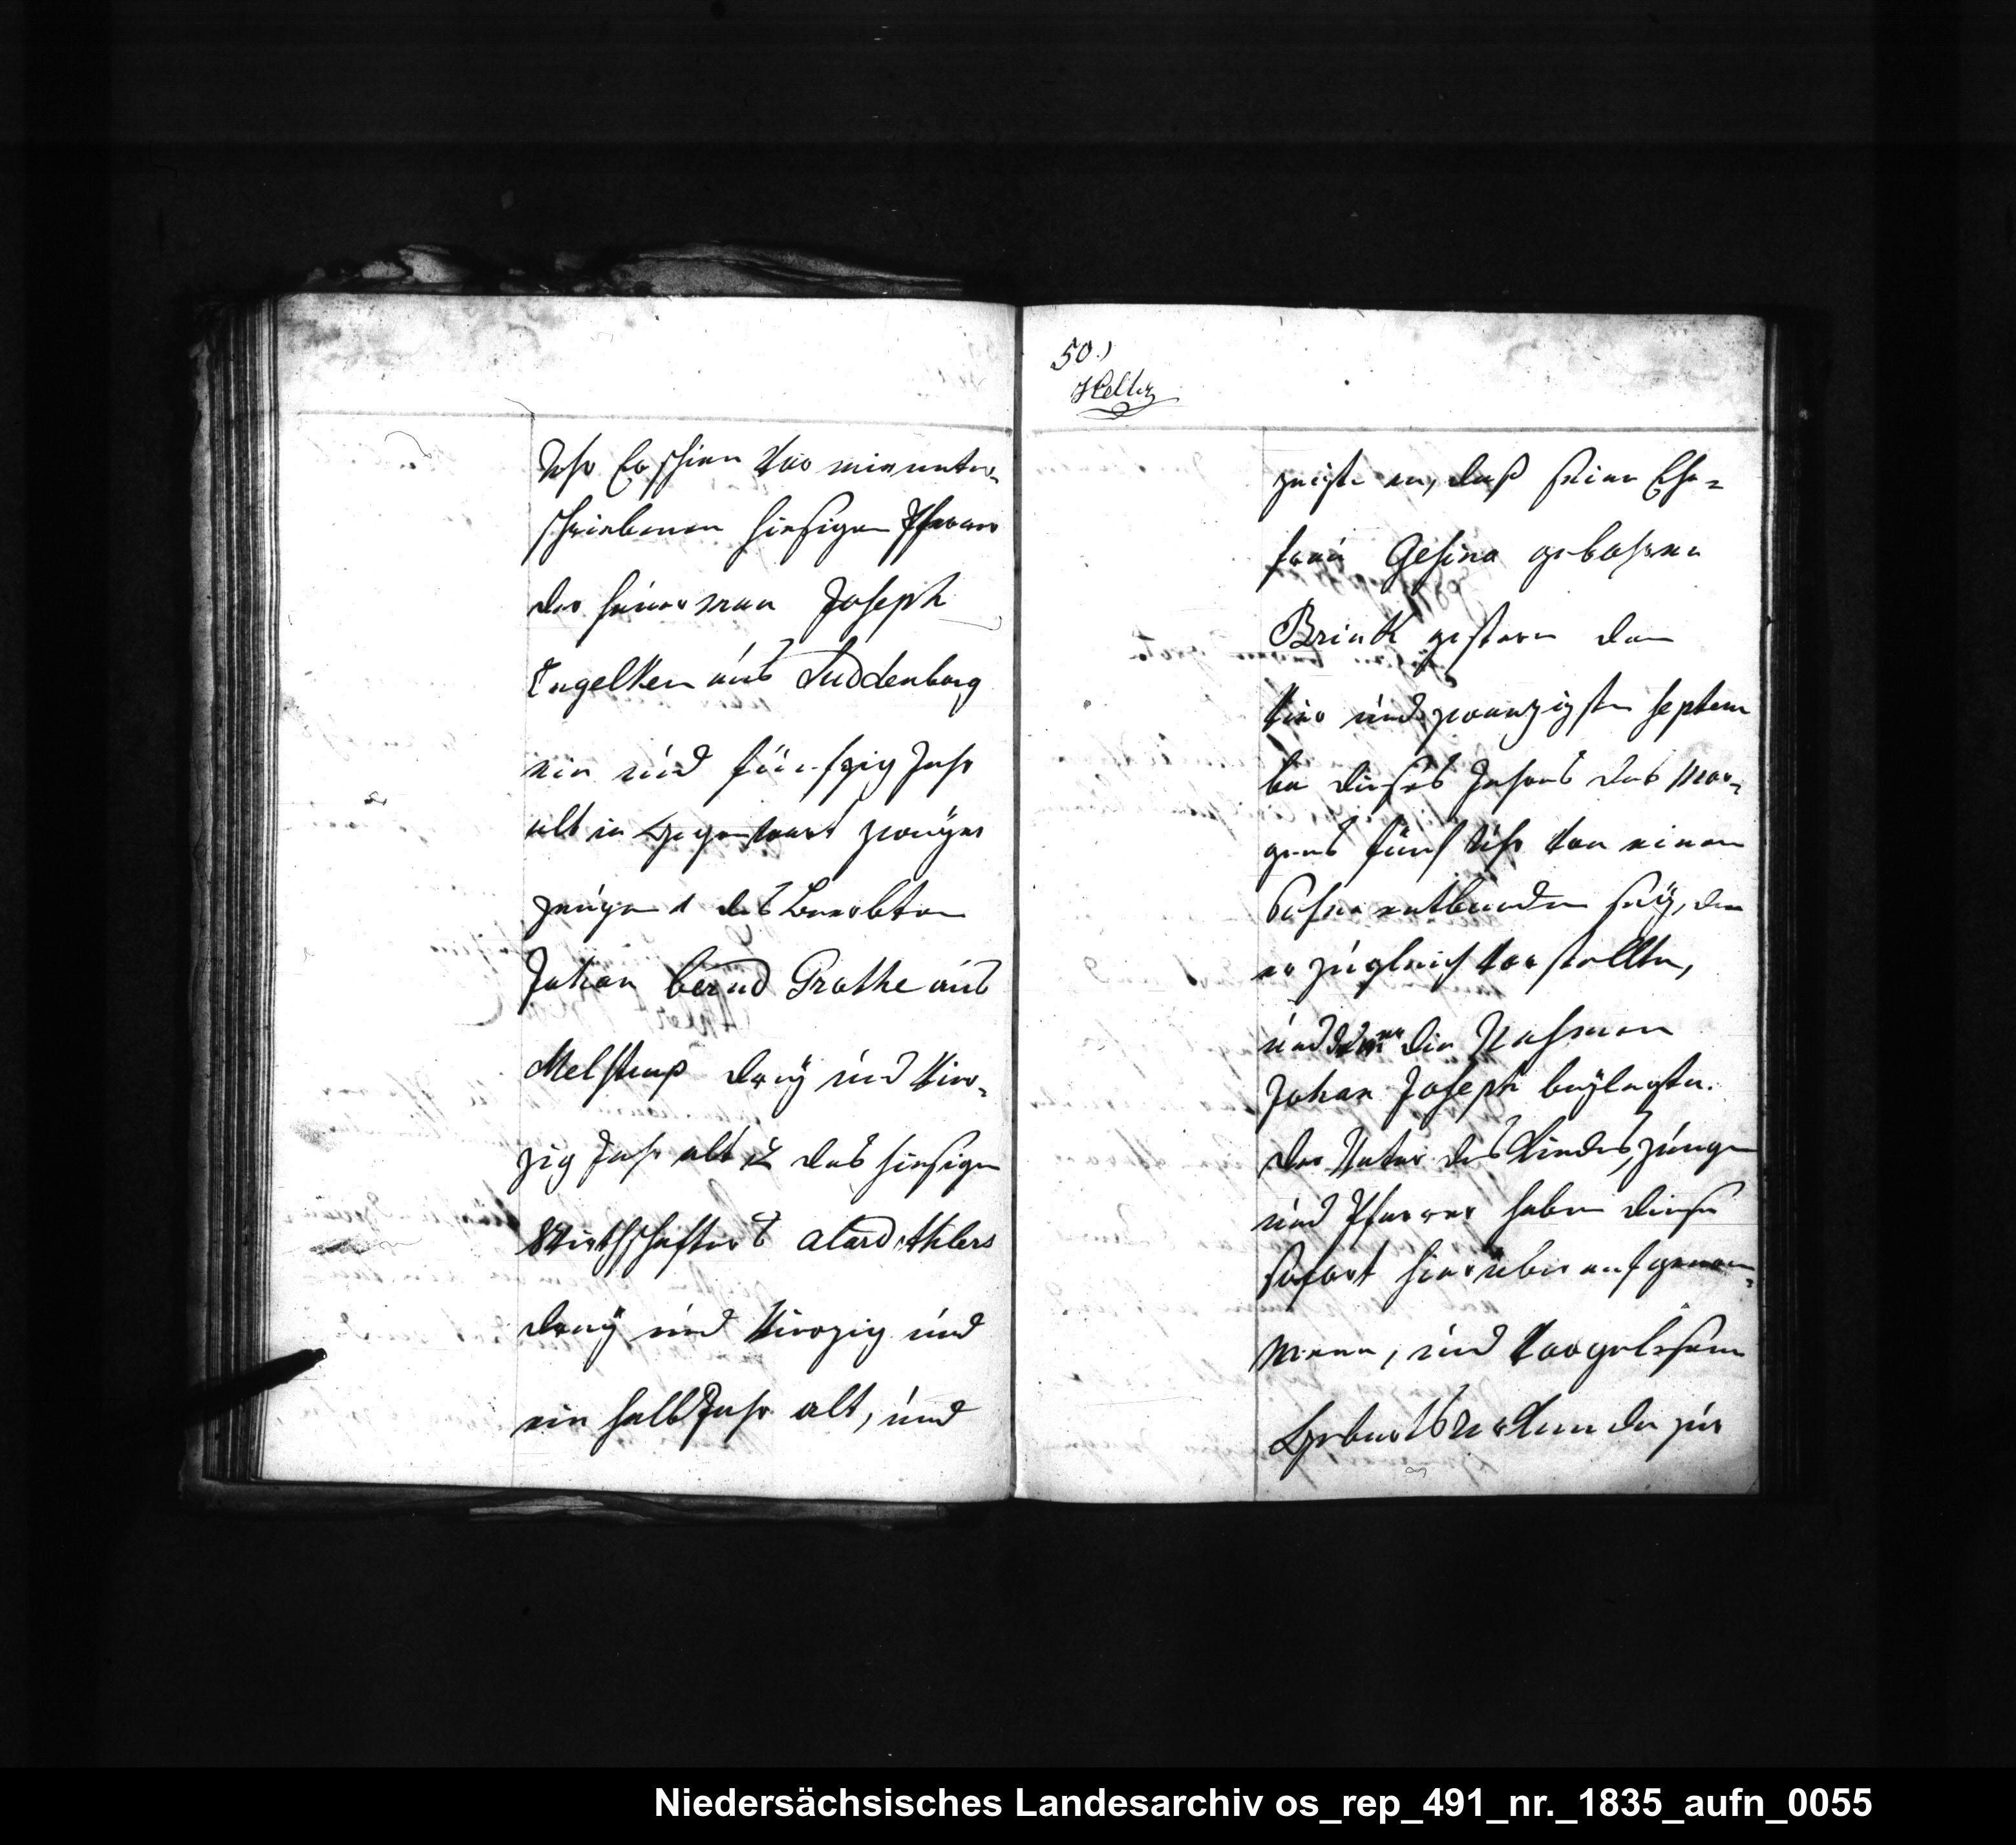 Uhr Erschien vor mir unter-
schriebenen hiesigen Pfarrer
der heuermann Joseph
Engelken aus Luddenborg
ein und fünfzig Jahr
alt in Gegenwart zweyer
zeugen 1 des Beerbten
Johan bernd Grothe aus
Melstrup drey und vier-
zig Jahr alt 2 des hiesigen
Wirthschafters alard Ahlers
dreÿ und vierzig und
ein halb Jahr alt, und
50.)
Heltz
zeigte an, daß seine Ehe-
frau Gesina gebohrne
Brink gestern den
vier und zwanzigsten septem
ber dieses Jahres des Mor-
gens fünf Uhr von einem
Sohne entbunden seÿ, den
er zugleich vorstellte,
und dem er die Nahmen
Johan Joseph beÿlegte.
Der Vater des Kindes, zeugen
und Pfarrer haben diese
sofort hierüber aufgenom-
mene, und vorgelesene
Geburts Urkunde zur
Niedersächsisches Landesarchiv os_rep_491_nr._1835_aufn_0055